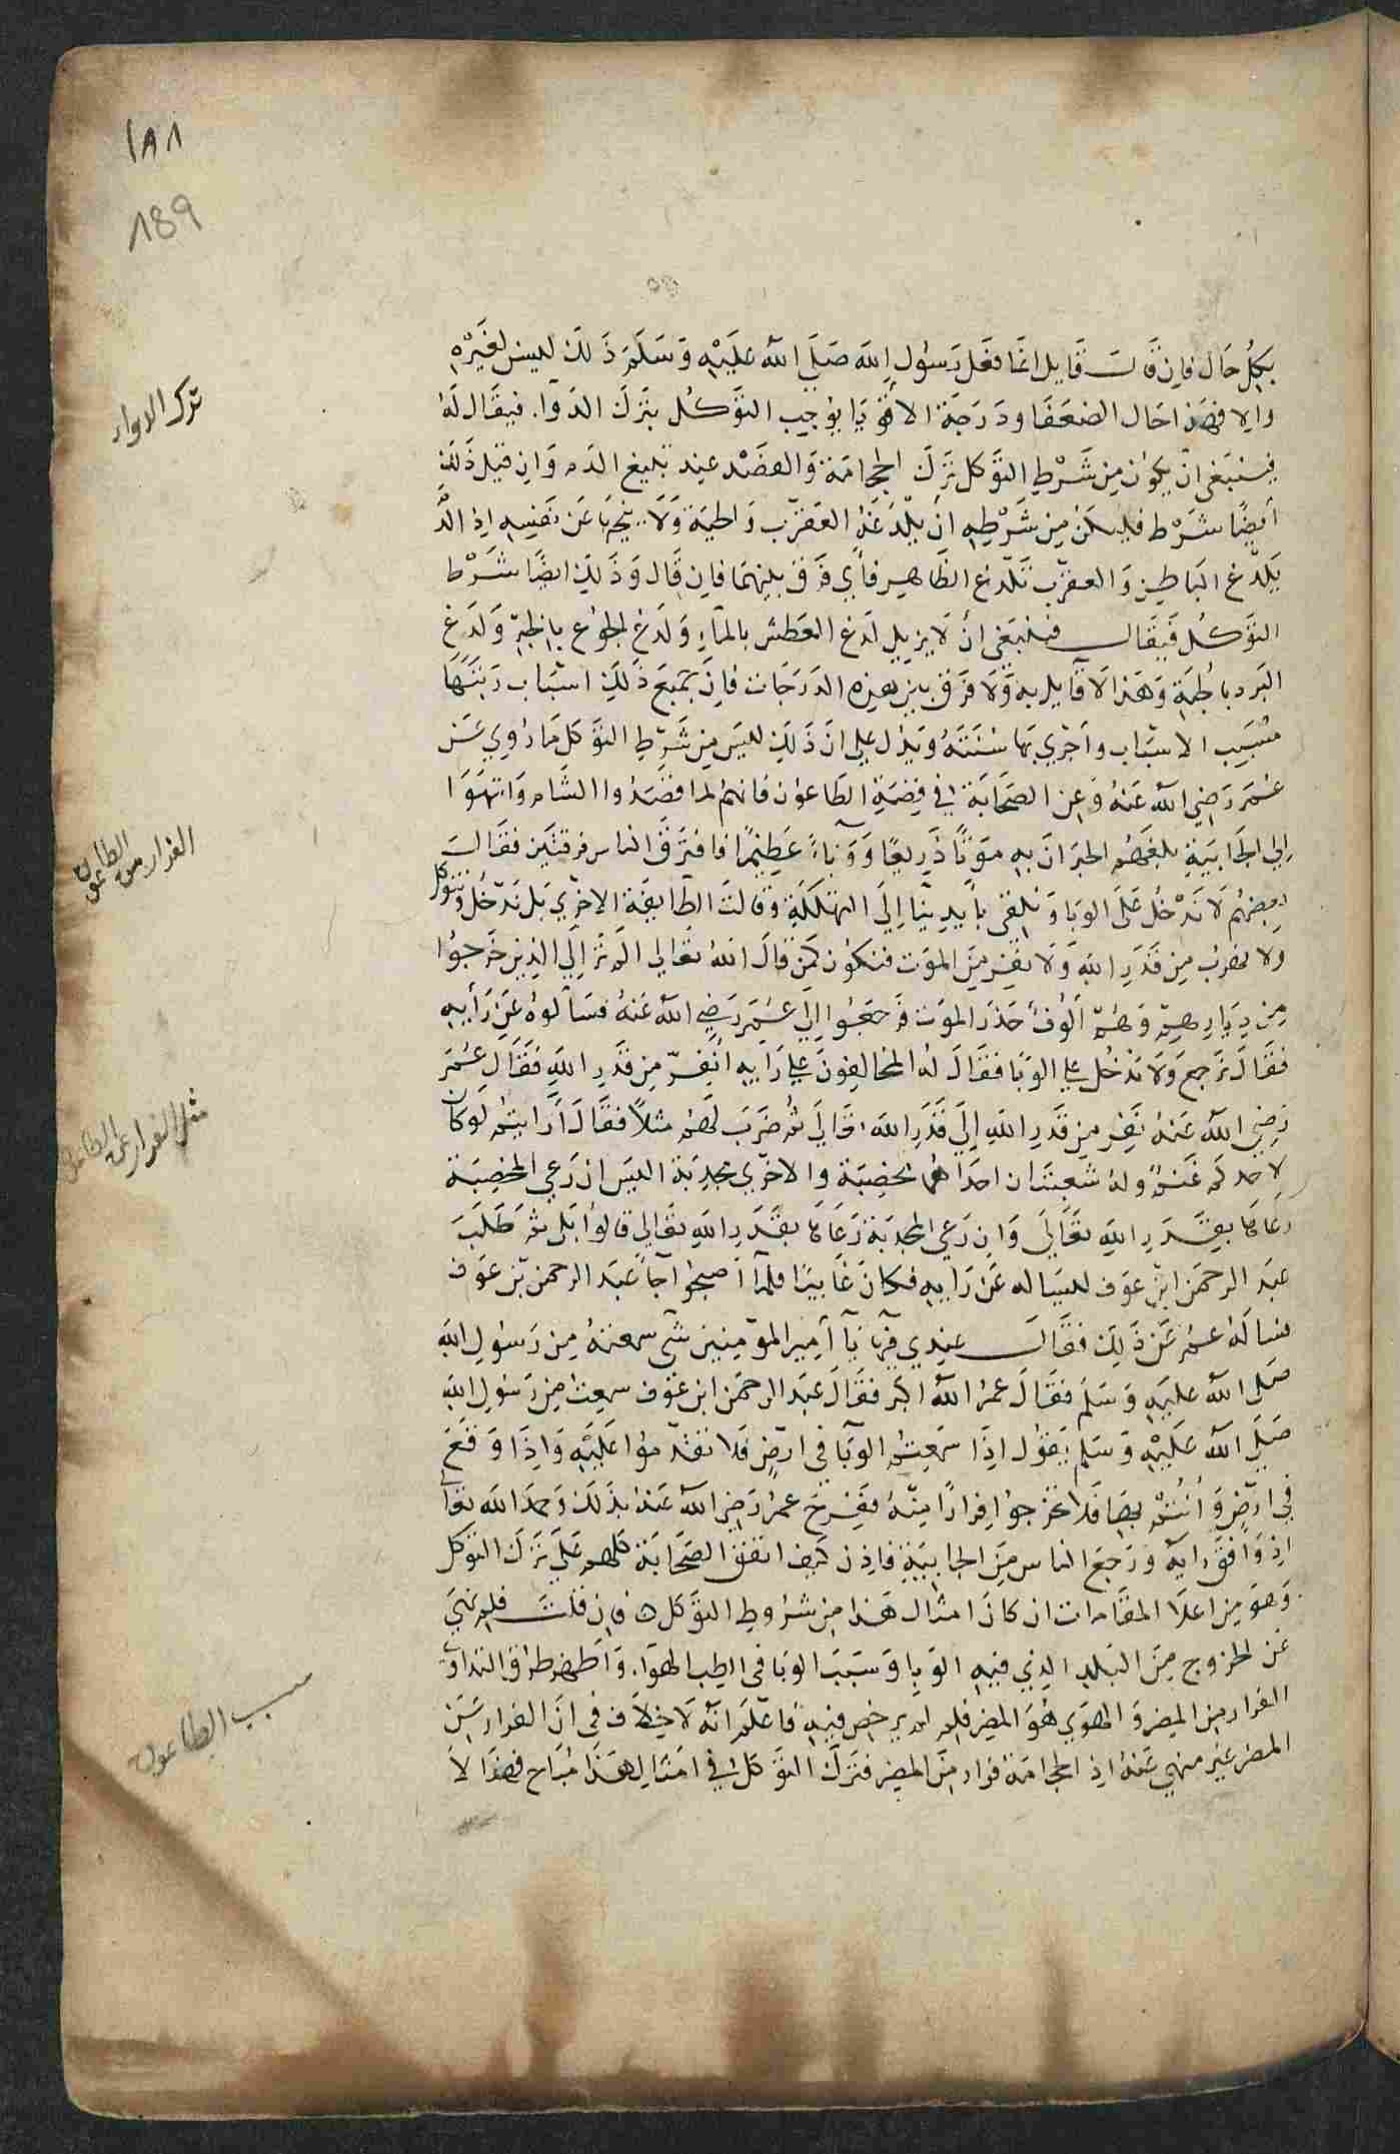 ١٨٨
189
بكل حال فان قال قايل انما فعل رسول الله صلي الله عليه وسلم ذلك ليسن لغيره
ترك الدواء
والا فهذا حال الضعفا ودرجة الاقويا يوجب التوكل بترك الدوا. فيقال له
فينبغي ان يكون من شرط التوكل ترك الحجامة والفصد عند تبيغ الدم وان قيل ذلك
ايضا شرط فليكن من شرطه ان يلدغه العقرب والحية ولا ينحيها عن نفسه اذ الدم
يلدغ الباطن والعقرب تلدغ الظاهر فأي فرق بينهما فان قال وذلك ايضا شرط
التوكل فيقال فينبغي أن لا يزيل لدغ العطش بالمآء ولدغ الجوع بالخبز ولدغ
البرد بالجبة وهذا لا قايل به ولا فرق بين هذه الدرجات فان جميع ذلك اسباب رتبها
مسبب الاسباب واجري بها سنته ويدل علي ان ذلك ليس من شرط التوكل ما روي عن
عمر رضي الله عنه وعن الصحابة في قصة الطاعون فانهم لما قصدوا الشام وانتهوا
الفرار من الطاعون
إلي الجابية بلغهم الخبر ان به موتًا ذريعًا ووبآءً عظيمًا فافترق الناس فرقتين فقال
بعضهم لا ندخل على الوبا ونلقي بأيدينا إلى التهلكة وقالت الطايفة الاخرى بل ندخل ونتوكل
ولا نهرب من قدر الله ولا نفر من الموت فنكون كمن قال الله تعالى الم تر إلى الذين خرجوا
من ديارهم وهم ألوف حذر الموت فرجعوا إلي عمر رضي الله عنه فسألوه عن رأيه
فقال نرجع ولا ندخل علي الوبا فقال له المخالفون علي رأيه أنفر من قدر الله فقال عمر
مثل الفرار عن الطاعون
رضي الله عنه نفر من قدر الله إلي قدر الله تعالى ثم ضرب لهم مثلاً فقال أرأيتم لو كان
لاحدكم غنم وله شعبتان احداهما مخصبة والاخرى مجدبة اليس ان رعي المخصبة
رعاها بقدر الله تعالى وان رعي المجدبة رعاها بقدر الله تعالى قالوا بلى ثم طلب
عبد الرحمن ابن عوف ليساله عن رايه فكان غايبا فلما أصبحوا جآء عبد الرحمن بن عوف
فساله عمر عن ذلك فقال عندي فيه يا أمير المؤمنين شي سمعته من رسول الله
صلي الله عليه وسلم فقال عمر الله اكبر فقال عبد الرحمن ابن عوف سمعت من رسول الله
صلي الله عليه وسلم يقول اذا سمعتم الوبا في ارض فلا تقدموا عليه واذا وقع
في ارض وأنتم بها فلا تخرجوا فرارًا منه ففرح عمر رضي الله عنه بذلك وحمد الله تعالى
اذ وافق رايه ورجع الناس من الجابية فاذن كيف اتفق الصحابة كلهم علي ترك التوكل
وهو من اعلا المقامات ان كان امثال هذا من شروط التوكل ه فان قلت فلم نهي
عن الخروج من البلد الذي فيه الوبا وسبب الوبا في الطب الهوا. واظهر طرق التداوي
سبب الطاعون
الفرار من المضر والهوي هو المضر فلم لم يرخص فيه فاعلم انه لا خلاف في ان الفرار من
المضر غير منهي عنه اذ الحجامة فرار من المضر فترك التوكل في امثال هذا مباح فهذا لا